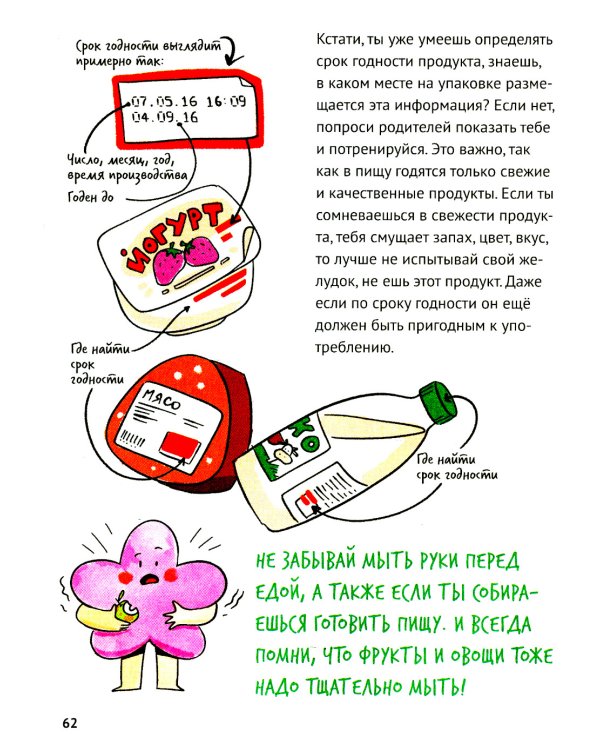 Срок годности выглядит
примерно так:
07.05.16 16:09
04.09.16
Число, месяц, год,
время производства
Годен до
ЙОГУРТ
Где найти
срок
годности
МЯСО
Кстати, ты уже умеешь определять
срок годности продукта, знаешь,
в каком месте на упаковке разме-
щается эта информация? Если нет,
попроси родителей показать тебе
и потренируйся. Это важно, так
как в пищу годятся только свежие
и качественные продукты. Если ты
сомневаешься в свежести продук-
та, тебя смущает запах, цвет, вкус,
то лучше не испытывай свой же-
лудок, не ешь этот продукт. Даже
если по сроку годности он ещё
должен быть пригодным к упо-
треблению.
Где найти
срок годности
НЕ ЗАБЫВАЙ МЫТЬ РУКИ ПЕРЕД
ЕДОЙ, А ТАКЖЕ ЕСЛИ ТЫ СОБИРА-
ЕШЬСЯ ГОТОВИТЬ ПИЩУ. И ВСЕГДА
ПОМНИ, ЧТО ФРУКТЫ И ОВОЩИ ТОЖЕ
НАДО ТЩАТЕЛЬНО МЫТЬ!
62